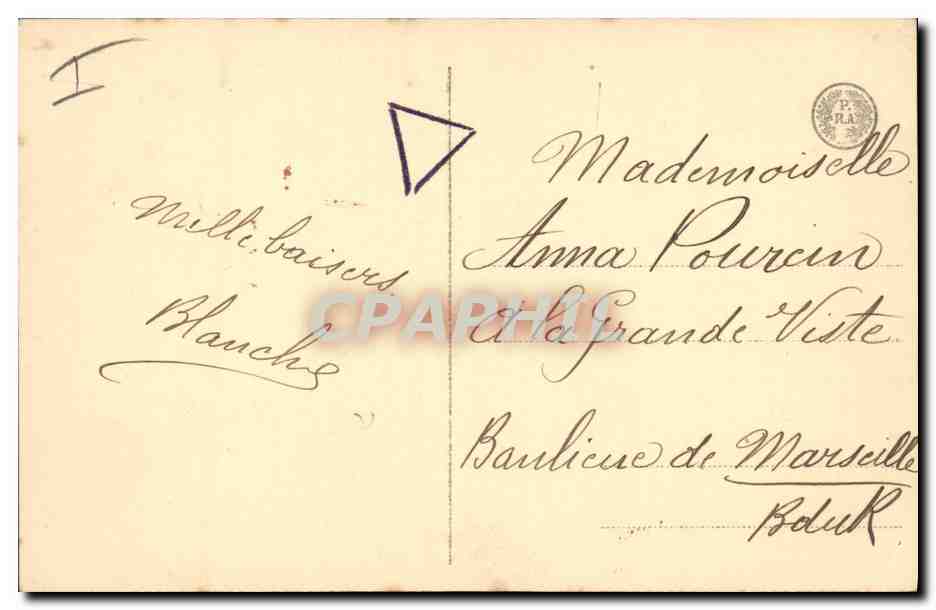 I
Mille baisers
Blanche
P.
R.A.
Mademoiselle
Anna Pourcin
A la Grande Viste
Banlieue de Marseille
B du R
CPAPHIL